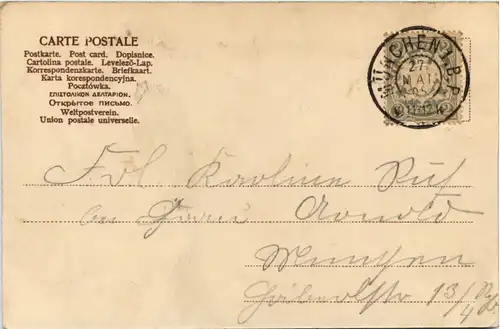 CARTE POSTALE
Postkarte. Post card. Dopisnice.
Cartolina postale. Levelező-Lap.
Korrespondenzkarte. Briefkaart.
Karta korespondencyjna.
Pocztówka.
ΕΠΙΣΤΟΛΙΚΟΝ ΔΕΛΤΑΡΙΟΝ.
Открытое письмо.
Weltpostverein.
Union postale universelle.
MÜNCHEN I.B.P.
27
MAI
Frl Karoline
Arnold
München
13/4